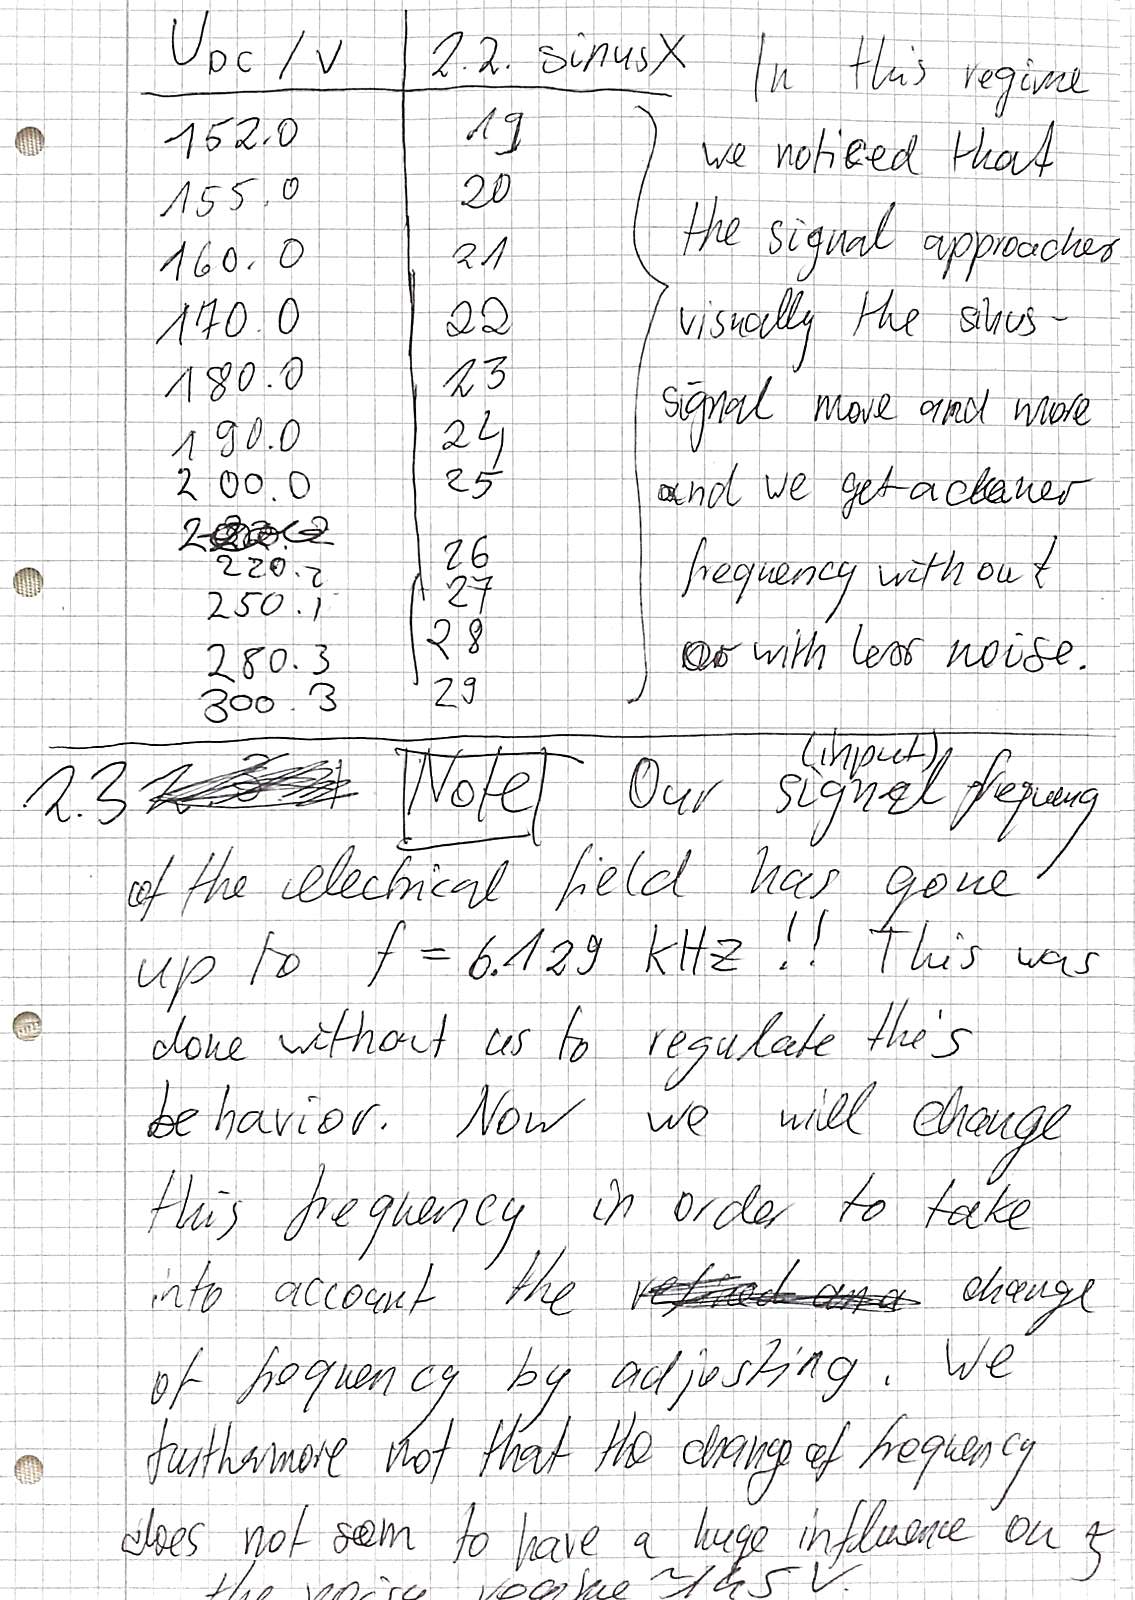 U_DC / V | 2.2. sinusX
152.0 | 19
155.0 | 20
160.0 | 21
170.0 | 22
180.0 | 23
190.0 | 24
200.0 | 25
220.2 | 26
250.1 | 27
280.3 | 28
300.3 | 29
In this regime
we noticed that
the signal approaches
visually the sinus-
signal more and more
and we get a cleaner
frequency without
or with less noise.
2.3 Note Our (input) signal frequency
of the electrical field has gone
up to f = 6.129 kHz!! This was
done without us to regulate this
behavior. Now we will change
this frequency in order to take
into account the change
of frequency by adjusting. We
furthermore not that the change of frequency
does not seem to have a huge influence on
the noise regime